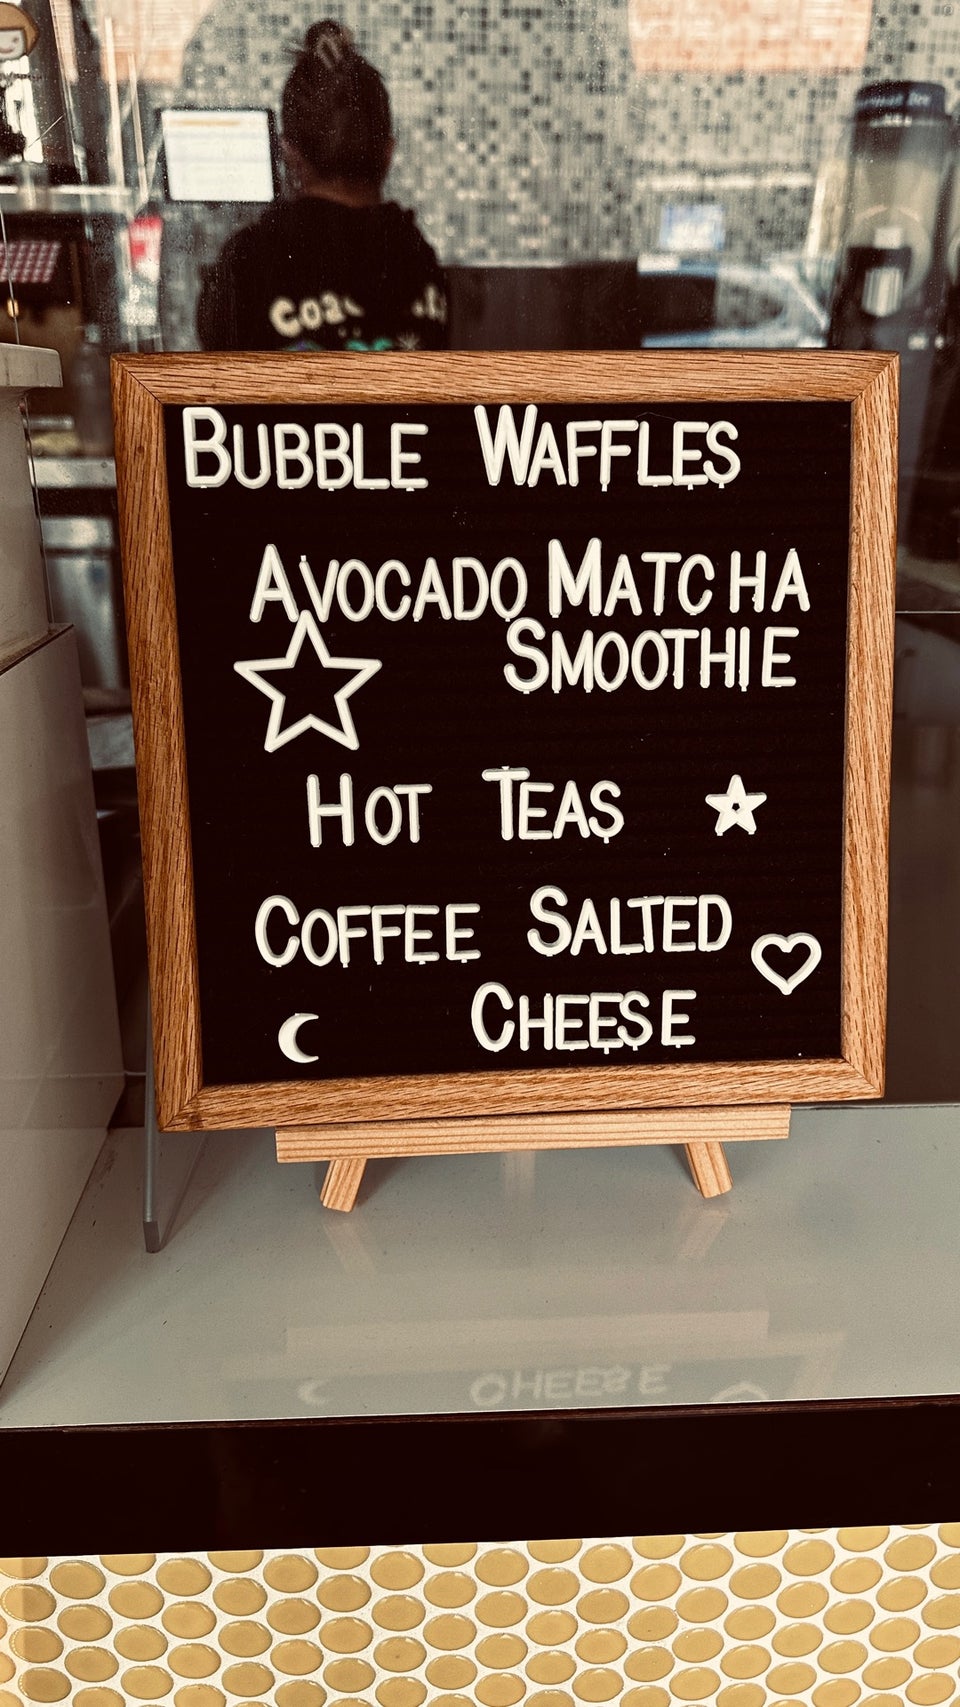 BUBBLE WAFFLES
AVOCADO MATCHA
SMOOTHIE
HOT TEAS
COFFEE SALTED
CHEESE